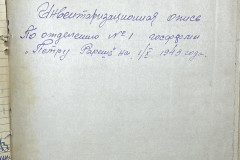 Инвентаризационная опись
По отделению №1 госфермы
"Петру Рареш" на 1/X 1949 года.